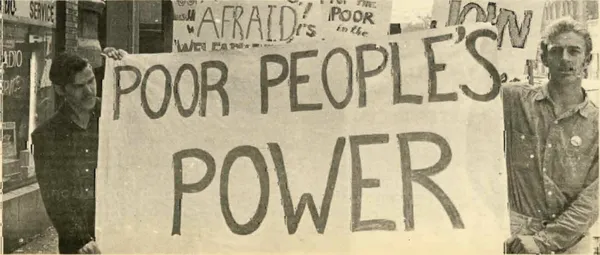 SERVICE
RADIO
"AFRAID!
POOR
in the
WELFARE
JOIN
POOR PEOPLE'S
POWER